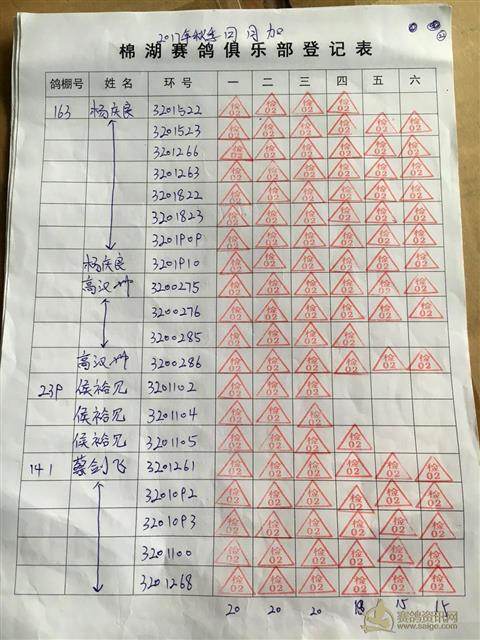 2017年秋季四月加
棉湖赛鸽俱乐部登记表
鸽棚号 姓名 环号 一 二 三 四 五 六
163 杨庆良 3201522 检02 检02 检02 检02
3201523 检02 检02 检02 检02 检02 检02
3201266 检02 检02 检02 检02 检02 检02
3201263 检02 检02 检02 检02 检02 检02
3201822 检02 检02 检02 检02 检02 检02
3201823 检02 检02 检02 检02 检02 检02
3201909 检02 检02 检02 检02 检02 检02
杨庆良 3201910 检02 检02 检02 检02 检02 检02
高汉 3200275 检02 检02 检02 检02 检02 检02
3200276 检02 检02 检02 检02 检02 检02
3200285 检02 检02 检02 检02
高汉 3200286 检02 检02 检02 检02 检02 检02
239 侯裕 3201102 检02 检02 检02
侯裕 3201104 检02 检02 检02
侯裕 3201105 检02 检02 检02 检02
141 蔡剑飞 3201261 检02 检02 检02 检02 检02 检02
3201092 检02 检02 检02 检02 检02 检02
3201093 检02 检02 检02 检02 检02 检02
3201100 检02 检02 检02 检02 检02 检02
3201268 检02 检02 检02 检02 检02 检02
20 20 20 18 15 15
赛鸽资讯网
www.saige.com